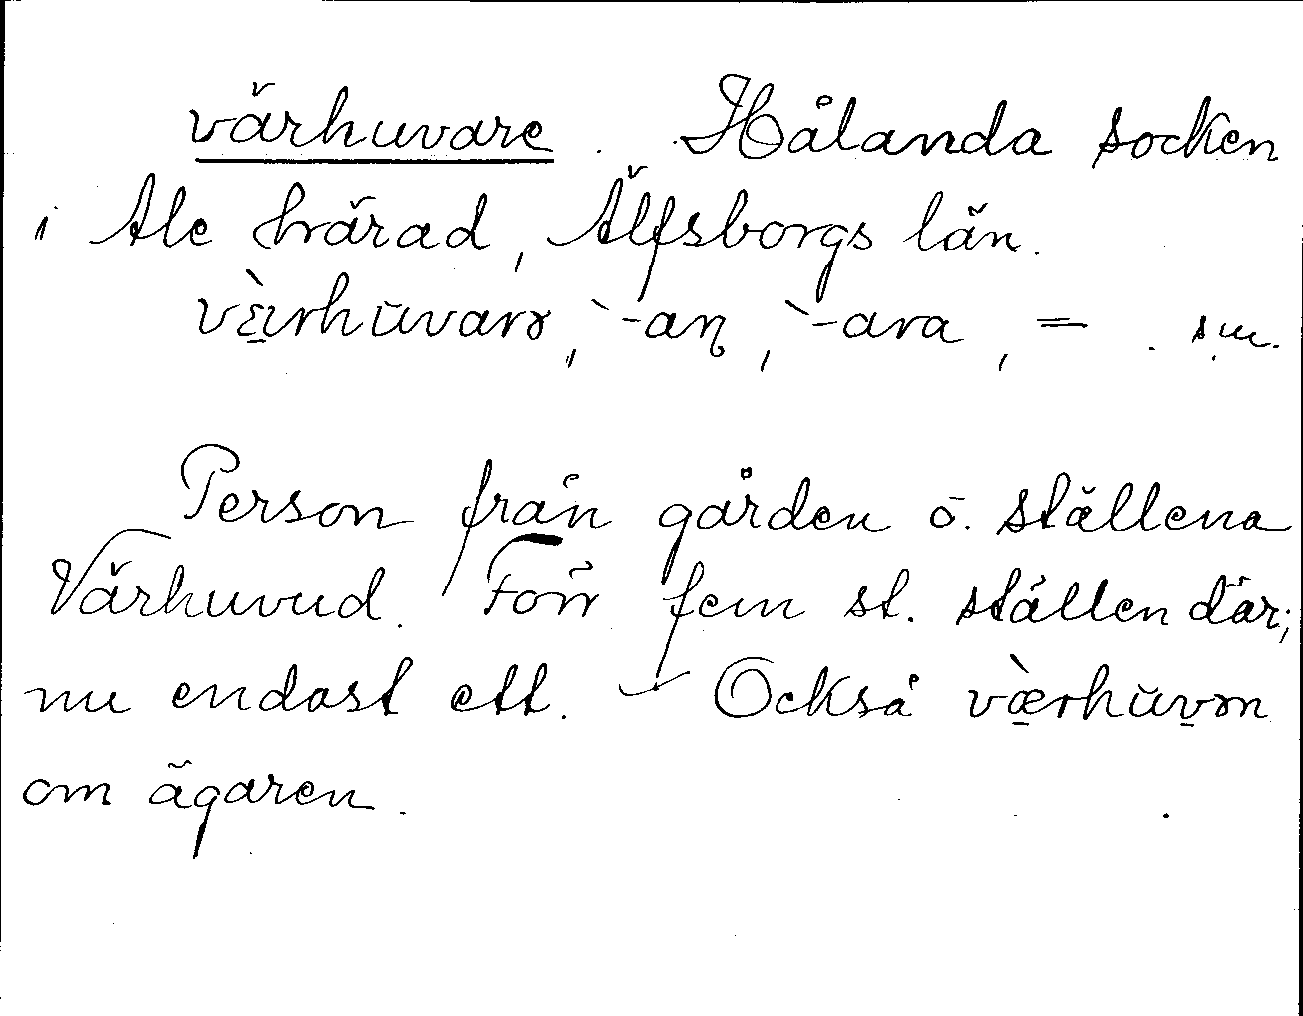 värhuvare. Hålanda socken
i Ale härad, Älfsborgs län.
væ̀rhūvarə, `-aɳ, `-ara, = . sm.
Person från gården o. ställena
Värhuvud. Förr fem st. ställen där;
nu endast ett. – Också væ̀rhūvən
om ägaren.